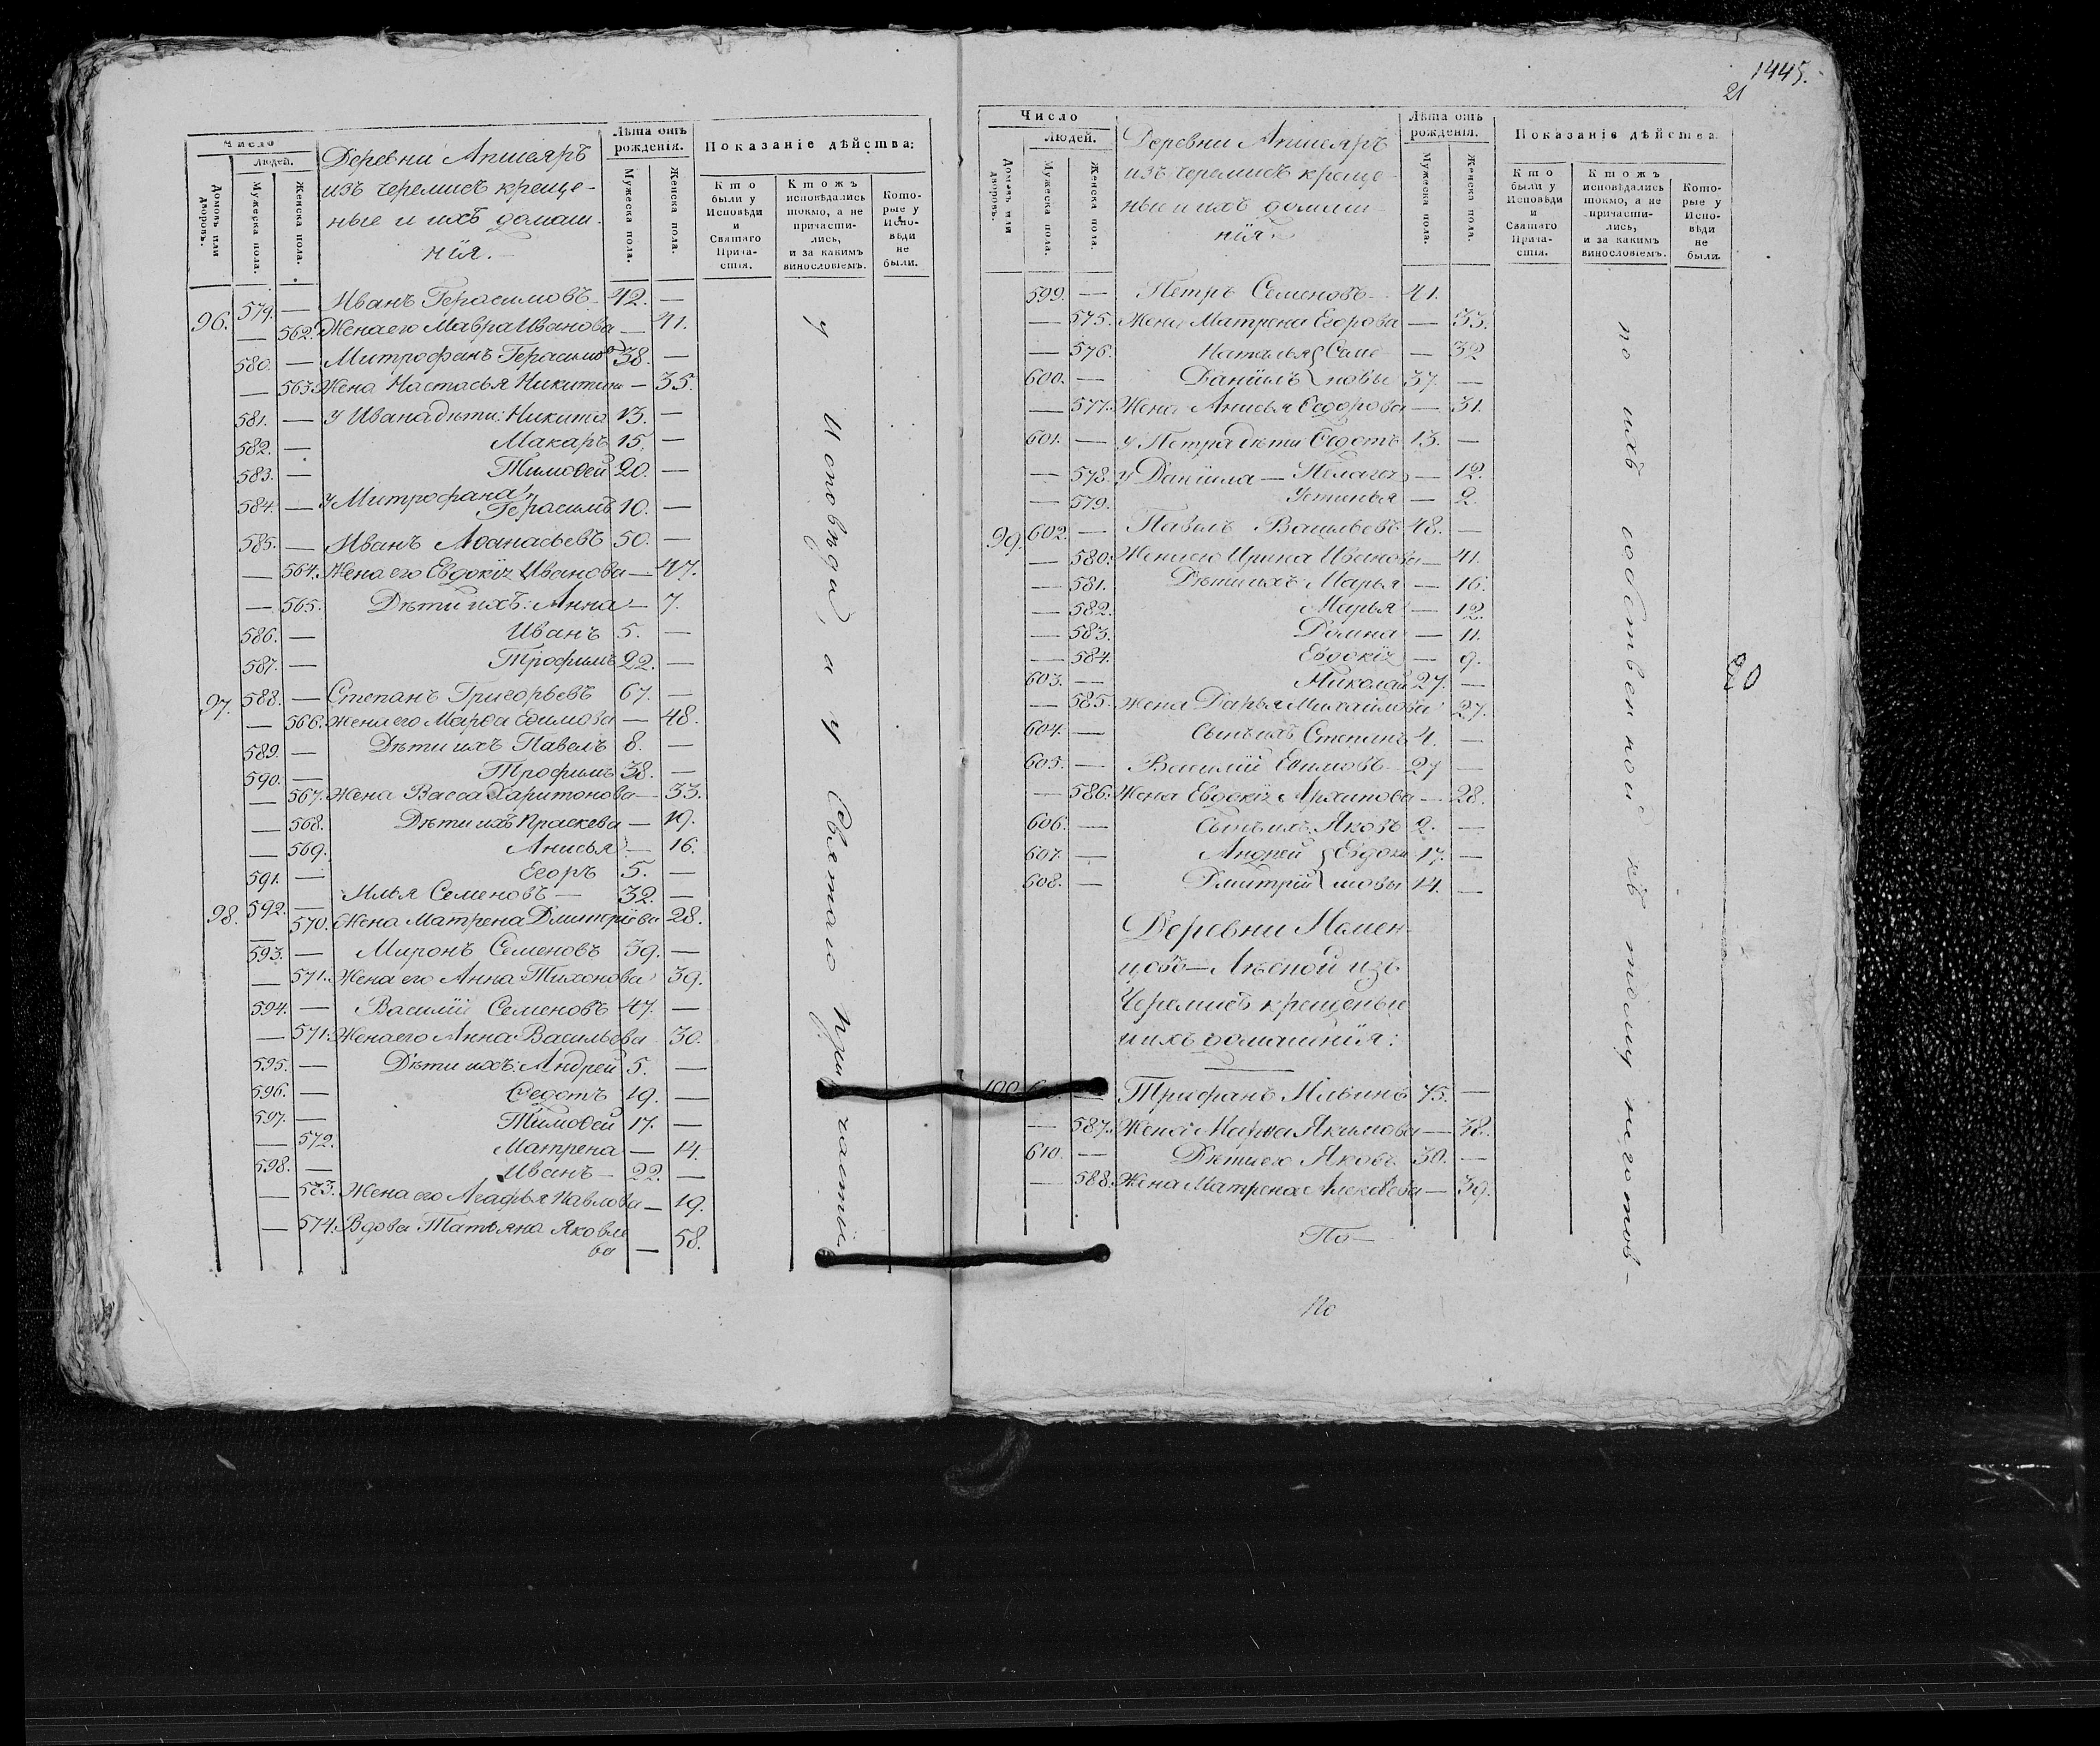 Число
Людей.
Домовъ или дворовъ.
Мужеска пола.
Женска пола.
Деревни Апшеяръ
изъ черемисъ креще-
ные и ихъ домаш-
нiя.
Лѣта отъ рожденiя.
Мужеска пола.
Женска пола.
Показанiе дѣйства:
Кто были у Исповѣди и Святаго Прича- стiя.
Ктожъ исповѣдались токмо, а не причасти- лись, и за какимъ винословiемъ.
Кото- рые у Испо- вѣди не были.
96. 579. — Иванъ Герасимовъ 42. —
— 562. Жена его Мавра Иванова — 41.
580. — Митрофанъ Герасимовъ 38. —
— 563. Жена Настасья Никитина — 35.
581. — У Ивана дѣти: Никита 13. —
582. — Макаръ 15. —
583. — Тимоѳей 20. —
584. — У Митрофана
Герасимъ 10. —
585. — Иванъ Аѳанасьевъ 50. —
— 564. Жена его Евдокiя Иванова — 47.
— 565. Дѣти ихъ: Анна — 7.
586. — Иванъ 5. —
587. — Трофимъ 22. —
97. 588. — Степанъ Григорьевъ 67. —
— 566. Жена его Марѳа Ефимова — 48.
589. — Дѣти ихъ Павелъ 8. —
590. — Трофимъ 38. —
— 567. Жена Васса Харитонова — 33.
— 568. Дѣти ихъ Праскева — 19.
— 569. Анисья — 16.
591. — Егоръ 5. —
98. 592. — Илья Семеновъ — 32. —
— 570. Жена Матрена Дмитрiева 28.
593. — Миронъ Семеновъ 39. —
— 571. Жена его Анна Тихонова 39.
594. — Василiй Семеновъ 47. —
— 571. Жена его Анна Васильева 30.
595. — Дѣти ихъ: Андрей 5. —
596. — Ѳедотъ 19. —
597. — Тимоѳей 17. —
— 572. Матрена — 14.
598. — Иванъ — 22. —
— 573. Жена его Агафья Павлова — 19.
— 574. Вдова Татьяна Яковле
ва — 58.
у Исповѣди, а у Святаго Причастiя
1445.
21
Число
Людей.
Домовъ или дворовъ.
Мужеска пола.
Женска пола.
Деревни Апшеяръ
изъ черемисъ креще-
ные и ихъ домаш
нiя.
Лѣта отъ рожденiя.
Мужеска пола.
Женска пола.
Показанiе дѣйства.
Кто были у Исповѣди и Святаго Прича- стiя.
Ктожъ исповѣдались токмо, а не причасти- лись, и за какимъ винословiемъ.
Кото- рые у Испо- вѣди не были.
599. — Петръ Семеновъ — 41.
— 575. Жена Матрена Егорова — 33.
— 576. Наталья Семе — 32
600. — Данiилъ новы 37. —
— 577. Жена Анисья Ѳедорова — 31.
601. — У Петра дѣти Ѳедотъ 13. —
— 578. У Данiила — Пелагея — 12.
— 579. Устинья — 2.
99. 602. — Павелъ Васильевъ 48. —
— 580. Жена его Ирина Иванова — 41.
— 581. Дѣти ихъ Марья — 16.
— 582. Марья — 12.
— 583. Домна — 11.
— 584. Евдокiя — 9.
603. — Николай 27. —
— 585. Жена Дарья Михайлова 27.
604. — Сынъ ихъ Степанъ 4. —
605. — Василiй Ефимовъ 27 —
— 586. Жена Евдокiя Архипова — 28.
606. — Сынъ ихъ Яковъ 2. —
607. — Андрей Евдоки 17. —
608. — Дмитрiй мовы 14. —
Деревни Немен-
цовъ — Лѣсной изъ
Черемисъ крещеные
и ихъ домашнiя:
100. — Трифанъ Ильинъ 75. —
— 587. Жена Марѳа Якимова — 38.
610. — Дѣти его Яковъ 30. —
— 588. Жена Матрена Алексѣева — 39.
По —
по ихъ собственной къ тому неготов-
По